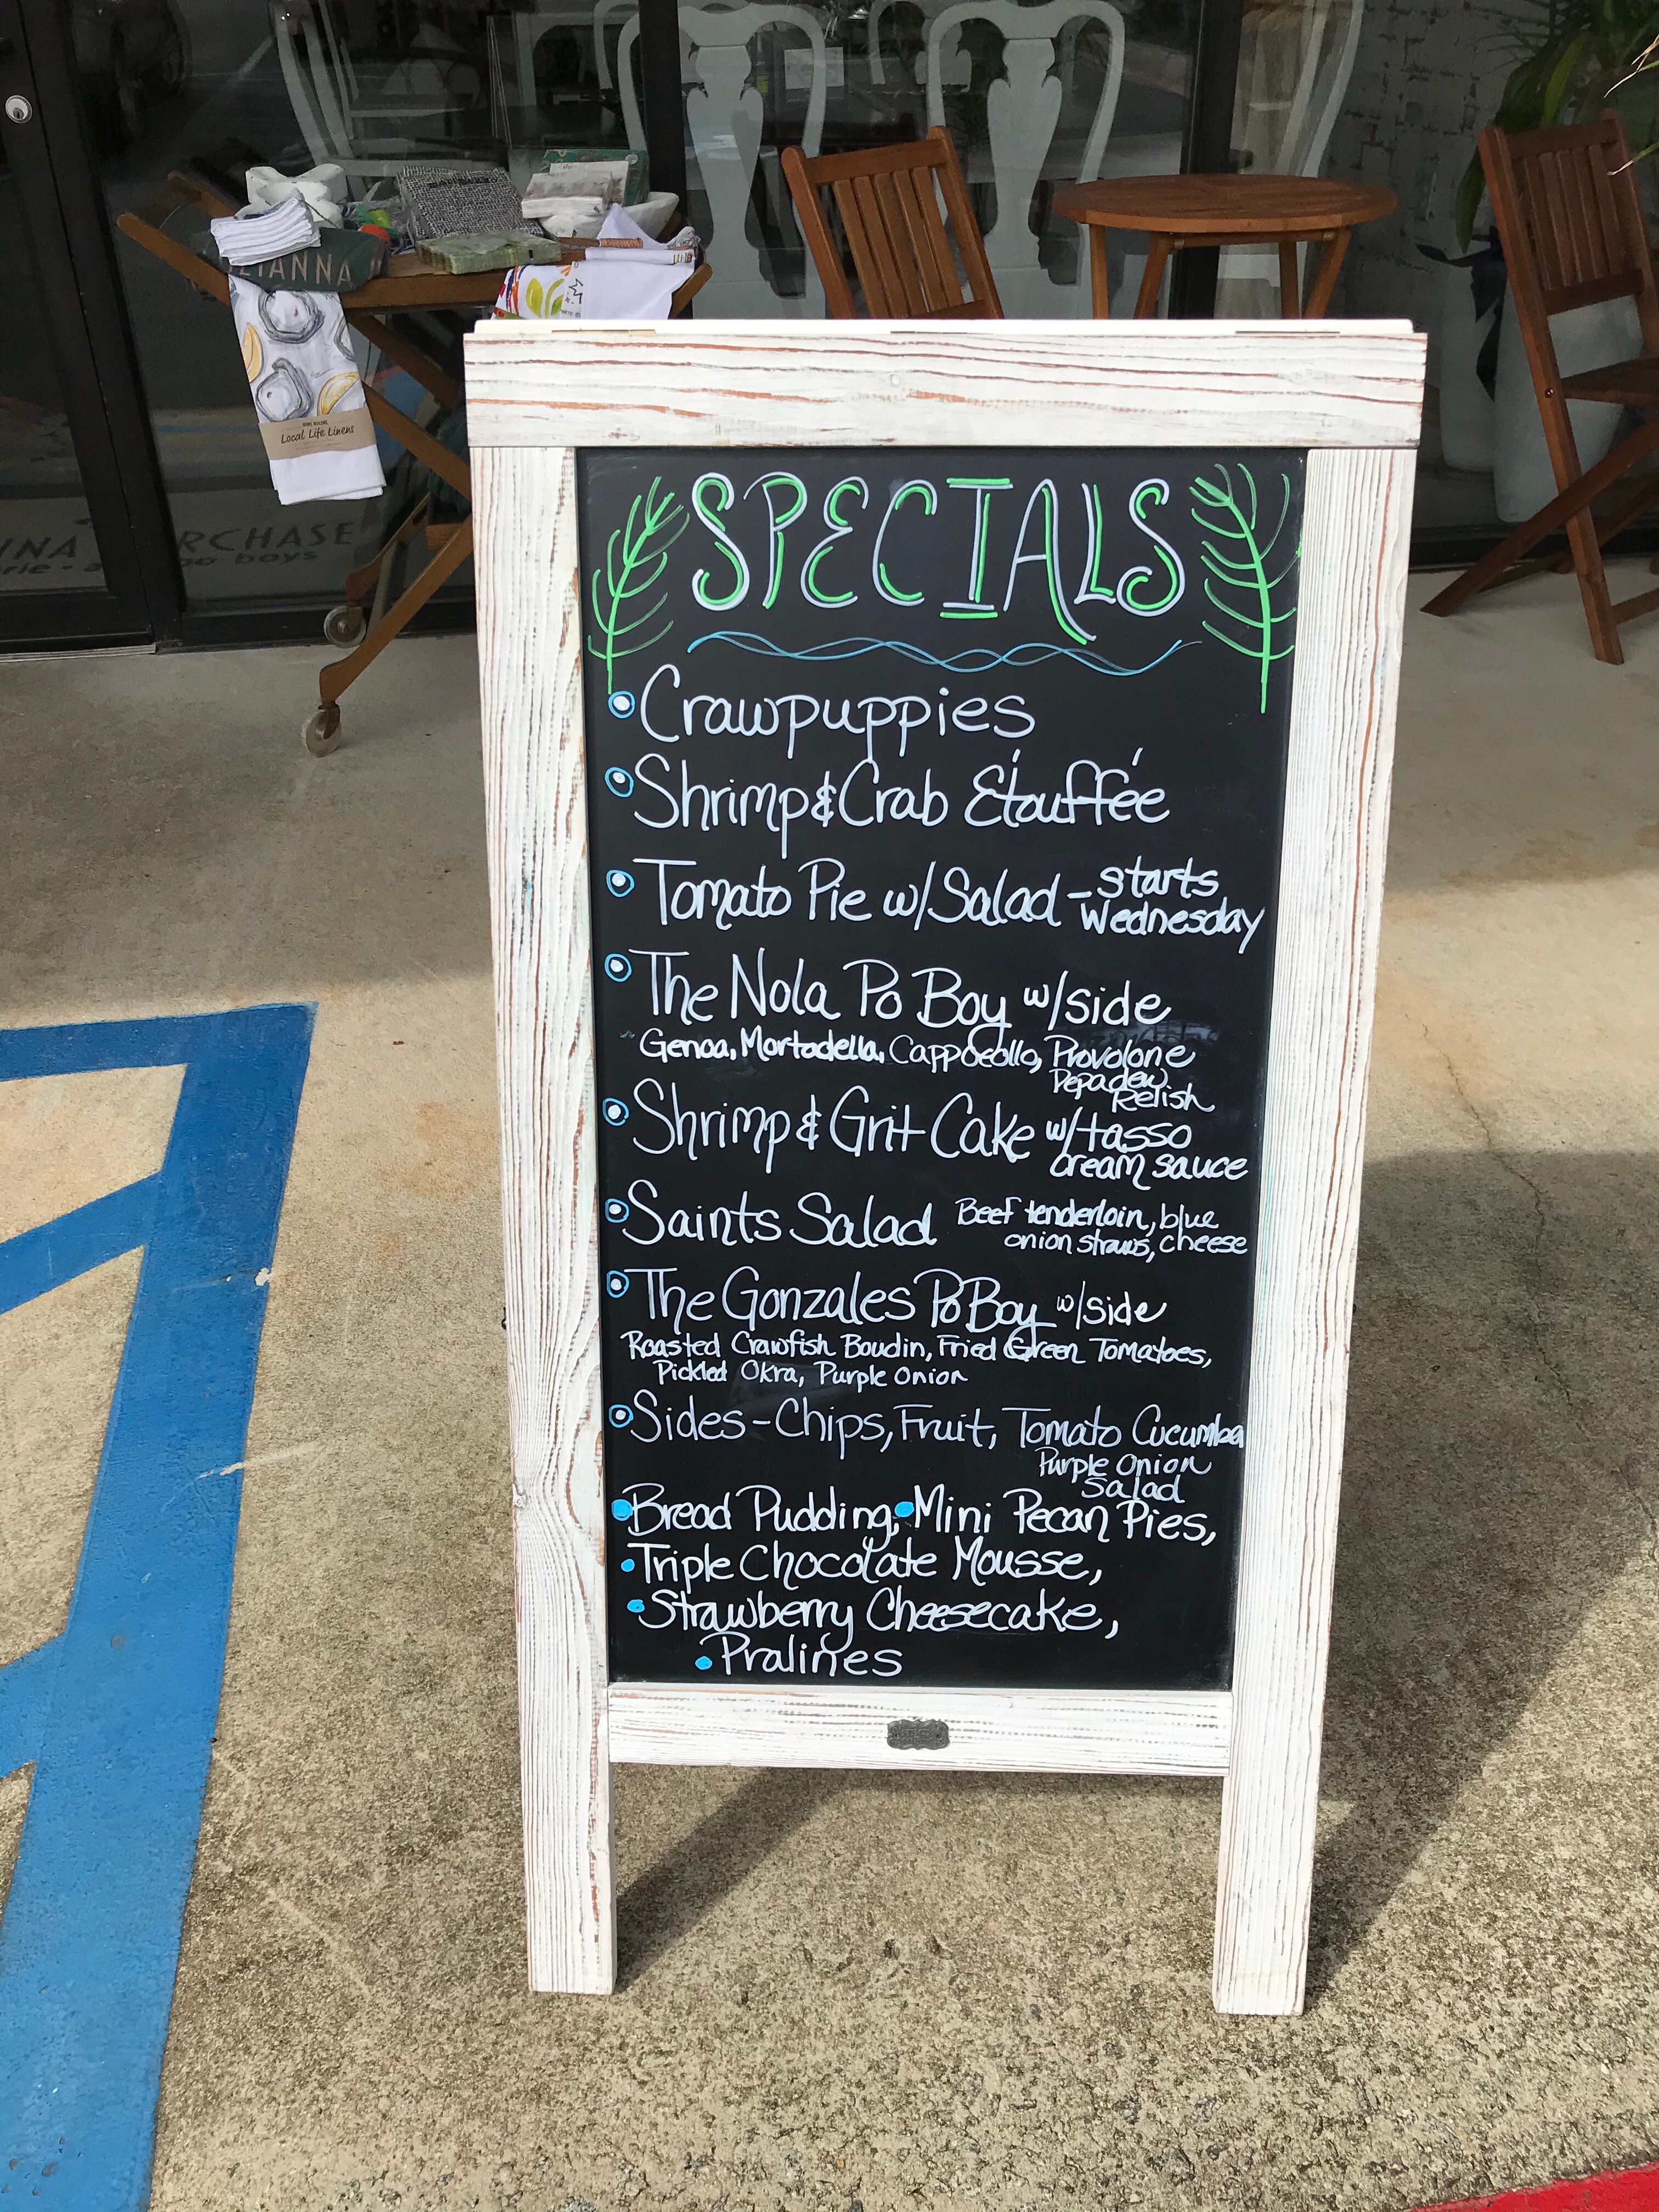 Local Life Linens
SPECIALS
Crawpuppies
Shrimp & Crab Étouffée
Tomato Pie w/ Salad - starts
Wednesday
The Nola Po Boy w/side
Genoa, Mortadella, Cappocollo, Provolone
Pepadew
Relish
Shrimp & Grit Cake w/tasso
cream sauce
Saints Salad Beef tenderloin, blue
onion straws, cheese
The Gonzales Po Boy w/side
Roasted Crawfish Boudin, Fried Green Tomatoes,
Pickled Okra, Purple Onion
Sides - Chips, Fruit, Tomato Cucumber
Purple Onion
Salad
Bread Pudding, Mini Pecan Pies,
Triple Chocolate Mousse,
Strawberry Cheesecake,
Pralines